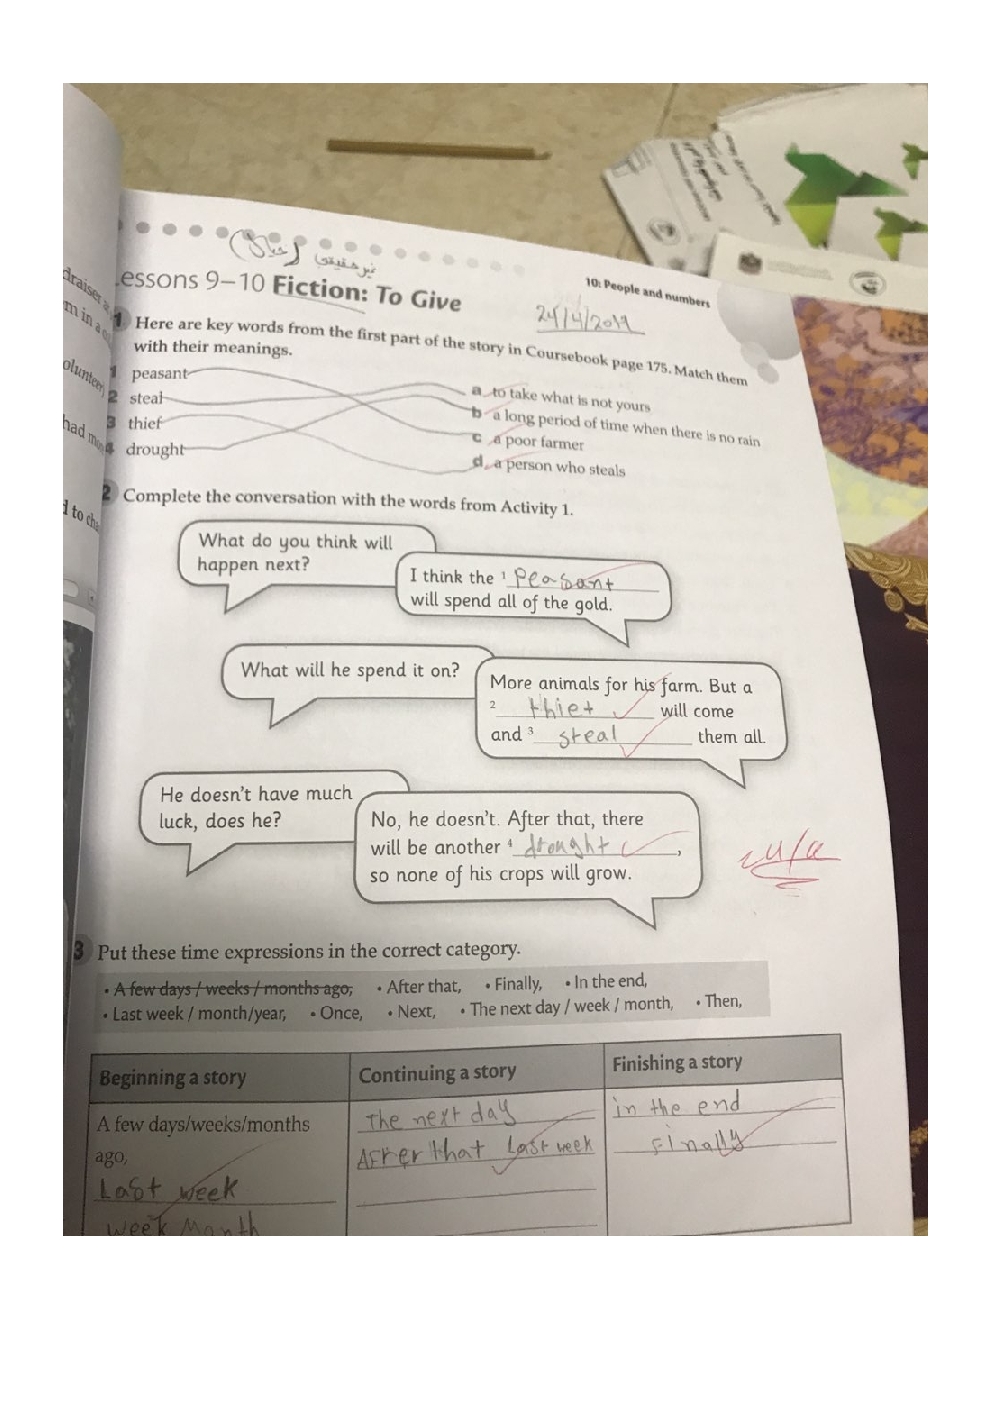 خيال
غير حقيقي
10: People and numbers
essons 9–10 Fiction: To Give
24/4/2019
1 Here are key words from the first part of the story in Coursebook page 175. Match them
with their meanings.
1 peasant
2 steal
3 thief
4 drought
a to take what is not yours
b a long period of time when there is no rain
c a poor farmer
d a person who steals
2 Complete the conversation with the words from Activity 1.
What do you think will
happen next?
I think the 1 Peasant
will spend all of the gold.
What will he spend it on?
More animals for his farm. But a
2 thiet will come
and 3 steal them all.
He doesn't have much
luck, does he?
No, he doesn't. After that, there
will be another 4 drought,
so none of his crops will grow.
3 Put these time expressions in the correct category.
• A few days / weeks / months ago, • After that, • Finally, • In the end,
• Last week / month/year, • Once, • Next, • The next day / week / month, • Then,
Beginning a story
A few days/weeks/months
ago,
Last week
week Month
Continuing a story
The next day
AFter that Last week
Finishing a story
in the end
Finally